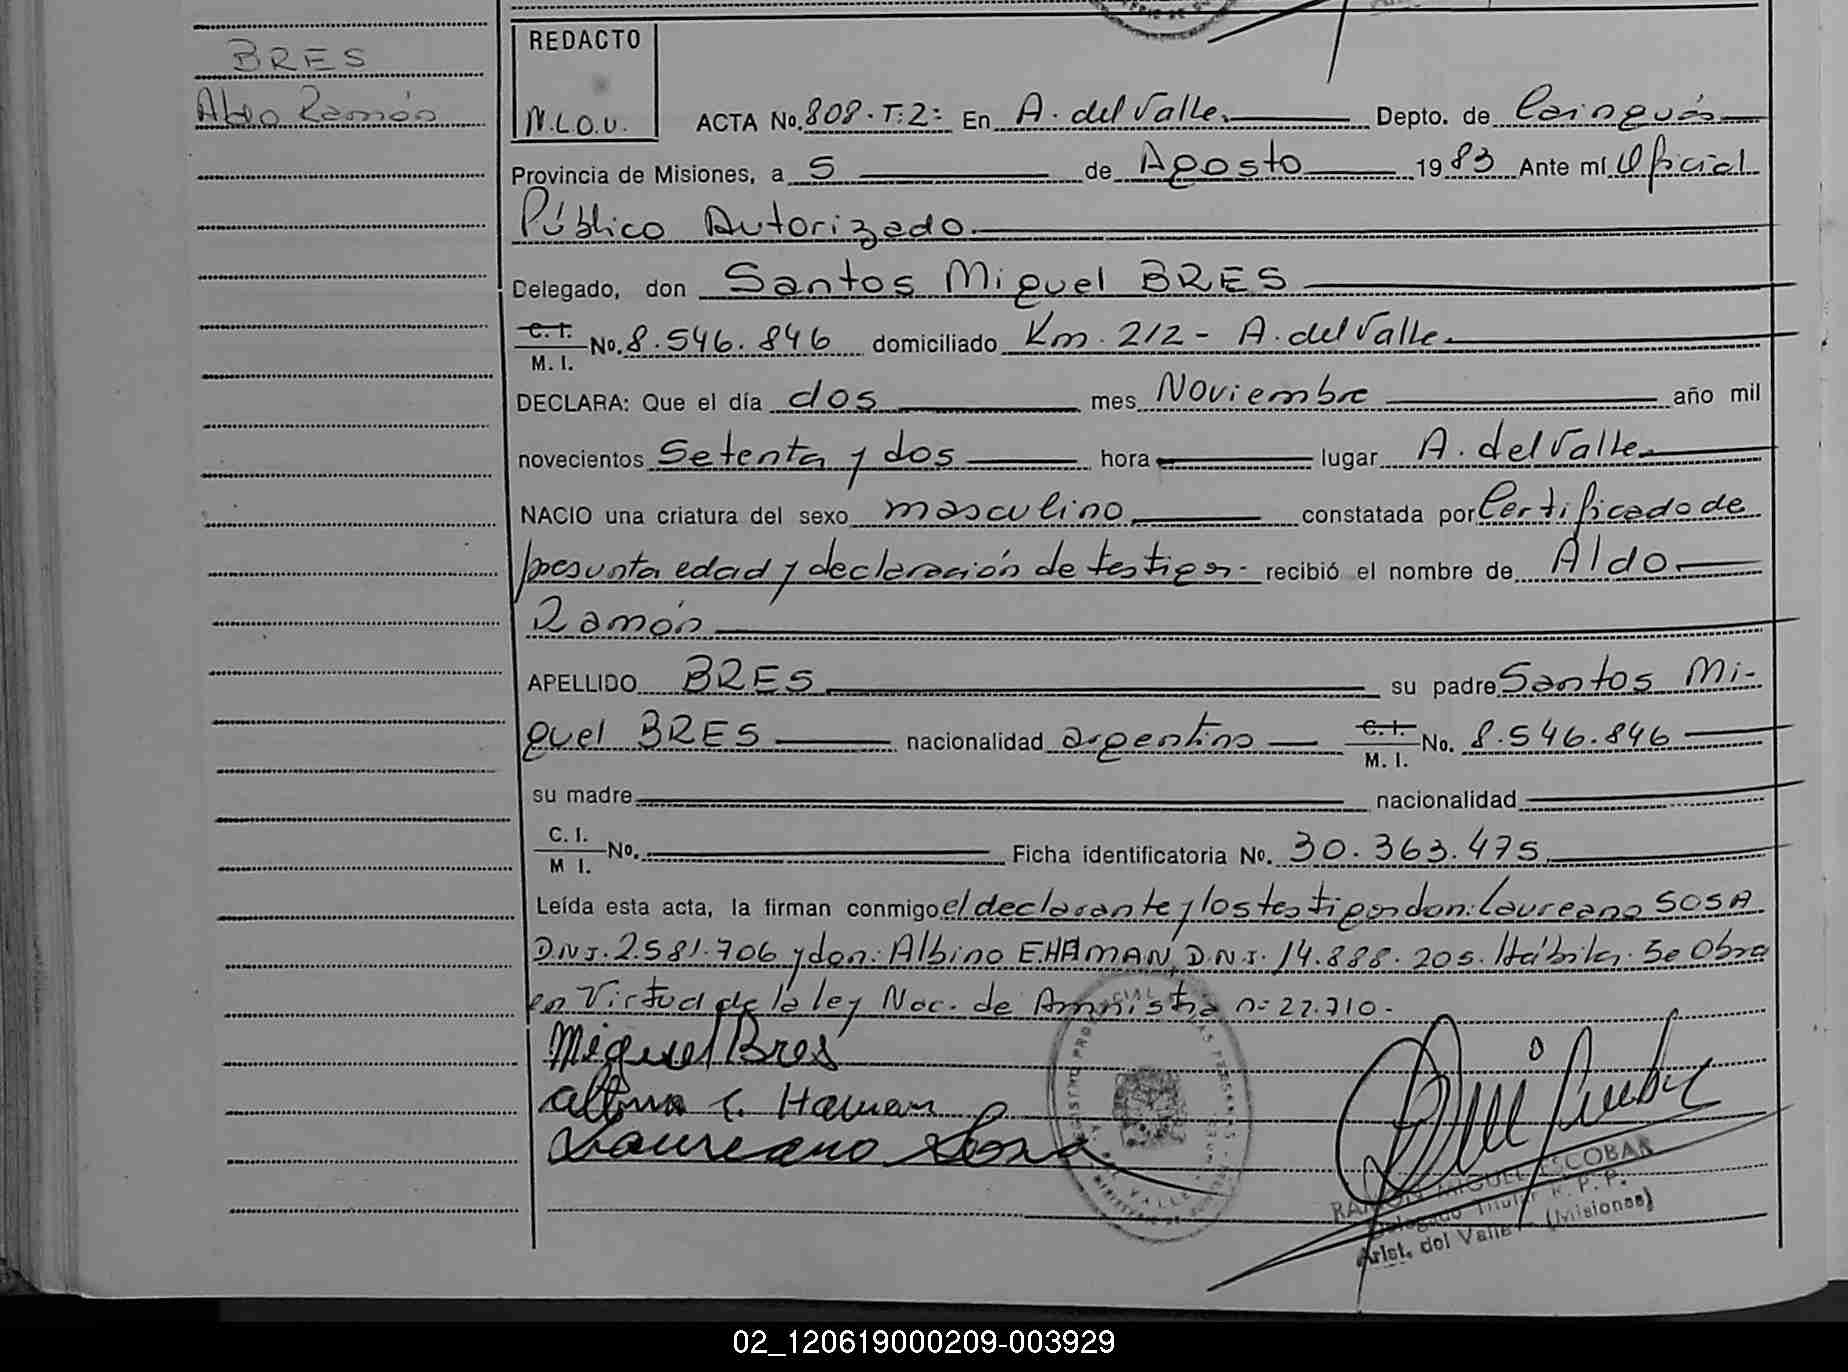 BRES
Aldo Ramón
REDACTO
N.L.O.V.
ACTA No. 808.T:2: En A. del Valle. Depto. de Cainguás
Provincia de Misiones, a 5 de Agosto 1983 Ante mí Oficial
Público Autorizado.
Delegado, don Santos Miguel BRES
C. I. / M. I. No. 8.546.846 domiciliado Km. 212 - A. del Valle.
DECLARA: Que el día dos mes Noviembre año mil
novecientos Setenta y dos hora lugar A. del Valle.
NACIO una criatura del sexo masculino, constatada por Certificado de
presunta edad y declaración de testigos. recibió el nombre de Aldo
Ramón
APELLIDO BRES su padre Santos Mi-
guel BRES nacionalidad argentino C. I. / M. I. No. 8.546.846
su madre nacionalidad
C. I. / M I. No. Ficha identificatoria No. 30.363.475
Leída esta acta, la firman conmigo el declarante y los testigos don: Laureano SOSA
D.N.I. 2.581.706 y don: Albino E. HAMAN, D.N.I. 14.888.205. Hábiles. Se Obra
en Virtud de la ley Nac. de Amnistia n: 22.710.-
Miguel Bres
Albino E. Haman
Laureano Sosa
RAMON MIGUEL ESCOBAR
Delegado Titular R. P. P.
Arist. del Valle - (Misiones)
02_120619000209-003929